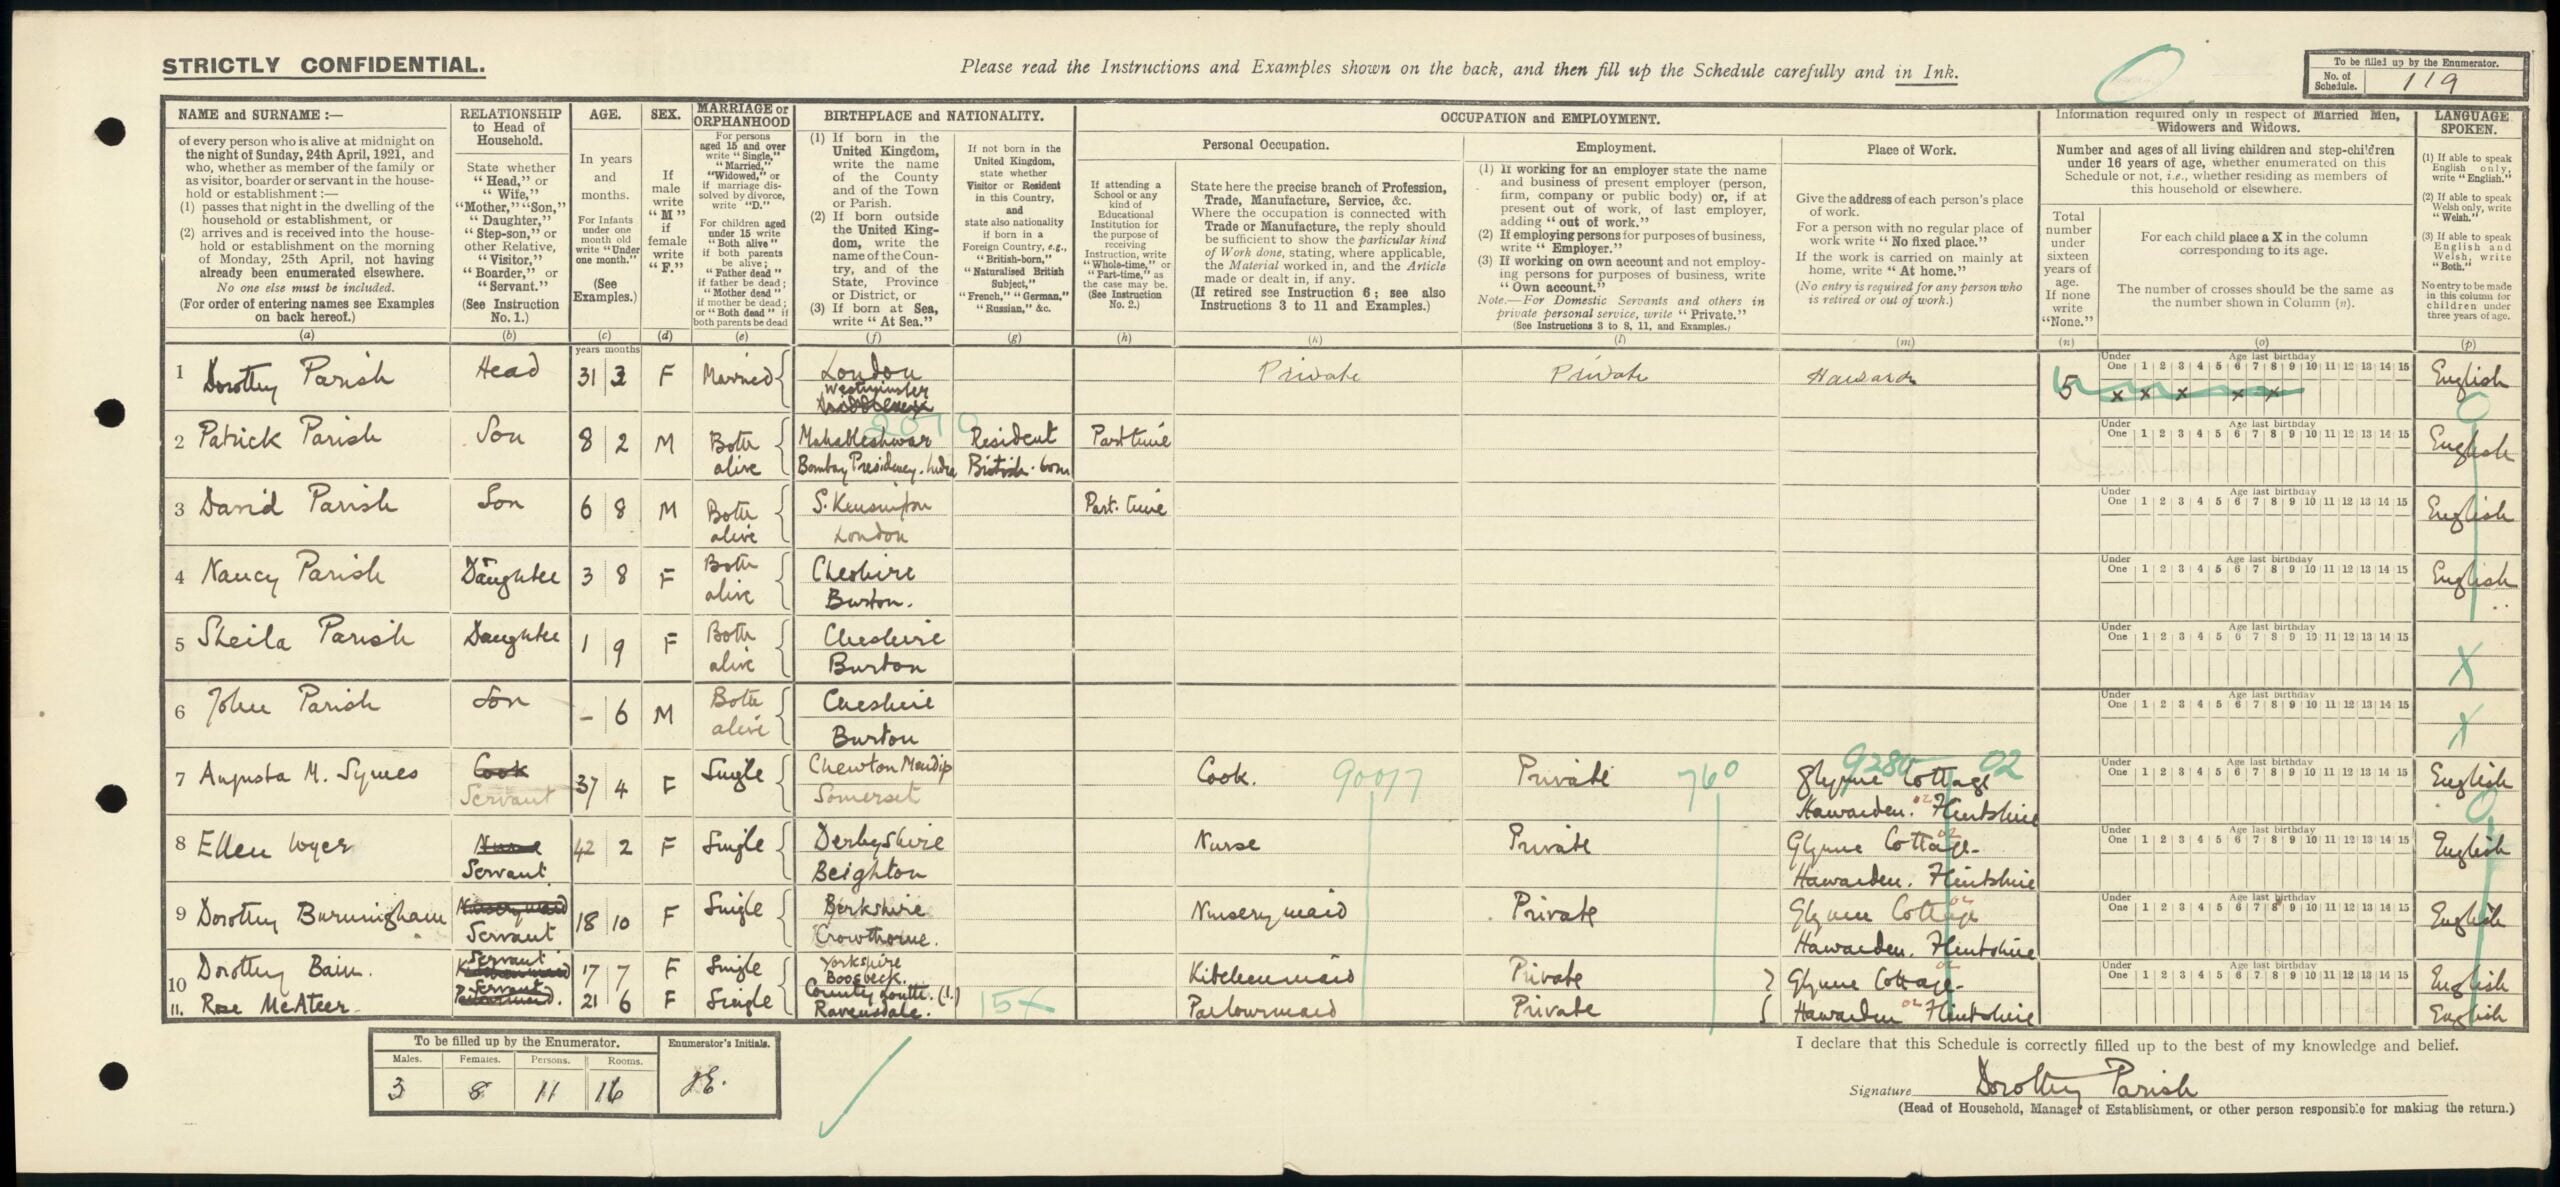 STRICTLY CONFIDENTIAL.
Please read the Instructions and Examples shown on the back, and then fill up the Schedule carefully and in Ink.
To be filled up by the Enumerator.
No. of Schedule. 119
NAME and SURNAME :—
of every person who is alive at midnight on
the night of Sunday, 24th April, 1921, and
who, whether as member of the family or
as visitor, boarder or servant in the house-
hold or establishment :—
(1) passes that night in the dwelling of the
household or establishment, or
(2) arrives and is received into the house-
hold or establishment on the morning
of Monday, 25th April, not having
already been enumerated elsewhere.
No one else must be included.
(For order of entering names see Examples
on back hereof.)
(a)
RELATIONSHIP
to Head of
Household.
State whether
"Head," or
"Wife,"
"Mother," "Son,"
"Daughter,"
"Step-son," or
other Relative,
"Visitor,"
"Boarder," or
"Servant."
(See Instruction
No. 1.)
(b)
AGE.
In years
and
months.
For Infants
under one
month old
write "Under
one month."
(See
Examples.)
(c)
years months
SEX.
If
male
write
"M"
if
female
write
"F."
(d)
MARRIAGE or
ORPHANHOOD
For persons
aged 15 and over
write "Single,"
"Married,"
"Widowed," or
if marriage dis-
solved by divorce,
write "D."
For children aged
under 15 write
"Both alive"
if both parents
be alive ;
"Father dead"
if father be dead ;
"Mother dead"
if mother be dead ;
or "Both dead" if
both parents be dead
(e)
BIRTHPLACE and NATIONALITY.
(1) If born in the
United Kingdom,
write the name
of the County
and of the Town
or Parish.
(2) If born outside
the United King-
dom, write the
name of the Coun-
try, and of the
State, Province
or District, or
(3) If born at Sea,
write "At Sea."
(f)
If not born in the
United Kingdom,
state whether
Visitor or Resident
in this Country,
and
state also nationality
if born in a
Foreign Country, e.g.,
"British-born,"
"Naturalised British
Subject,"
"French," "German,"
"Russian," &c.
(g)
OCCUPATION and EMPLOYMENT.
If attending a
School or any
kind of
Educational
Institution for
the purpose of
receiving
Instruction, write
"Whole-time," or
"Part-time," as
the case may be.
(See Instruction
No. 2.)
(h)
Personal Occupation.
State here the precise branch of Profession,
Trade, Manufacture, Service, &c.
Where the occupation is connected with
Trade or Manufacture, the reply should
be sufficient to show the particular kind
of Work done, stating, where applicable,
the Material worked in, and the Article
made or dealt in, if any.
(If retired see Instruction 6 ; see also
Instructions 3 to 11 and Examples.)
(k)
Employment.
(1) If working for an employer state the name
and business of present employer (person,
firm, company or public body) or, if at
present out of work, of last employer,
adding "out of work."
(2) If employing persons for purposes of business,
write "Employer."
(3) If working on own account and not employ-
ing persons for purposes of business, write
"Own account."
Note.—For Domestic Servants and others in
private personal service, write "Private."
(See Instructions 3 to 8, 11, and Examples.)
(l)
Place of Work.
Give the address of each person's place
of work.
For a person with no regular place of
work write "No fixed place."
If the work is carried on mainly at
home, write "At home."
(No entry is required for any person who
is retired or out of work.)
(m)
Information required only in respect of Married Men,
Widowers and Widows.
Number and ages of all living children and step-children
under 16 years of age, whether enumerated on this
Schedule or not, i.e., whether residing as members of
this household or elsewhere.
Total
number
under
sixteen
years of
age.
If none
write
"None."
(n)
For each child place a X in the column
corresponding to its age.
The number of crosses should be the same as
the number shown in Column (n).
(o)
LANGUAGE
SPOKEN.
(1) If able to speak
English only,
write "English."
(2) If able to speak
Welsh only, write
"Welsh."
(3) If able to speak
English and
Welsh, write
"Both."
No entry to be made
in this column for
children under
three years of age.
(p)
1 Dorothy Parish Head 31 3 F Married London Private Private Hawarden 5 English
Westminster
Middlesex
Under One 1 2 3 4 5 6 7 8 9 10 11 12 13 14 15 Age last birthday
x x x x x
2 Patrick Parish Son 8 2 M Both alive Mahableshwar Resident Part time English
Bombay Presidency. India British-born
Under One 1 2 3 4 5 6 7 8 9 10 11 12 13 14 15 Age last birthday
3 David Parish Son 6 8 M Both alive S. Kensington Part. time English
London
Under One 1 2 3 4 5 6 7 8 9 10 11 12 13 14 15 Age last birthday
4 Nancy Parish Daughter 3 8 F Both alive Cheshire English
Burton.
Under One 1 2 3 4 5 6 7 8 9 10 11 12 13 14 15 Age last birthday
5 Sheila Parish Daughter 1 9 F Both alive Cheshire X
Burton
Under One 1 2 3 4 5 6 7 8 9 10 11 12 13 14 15 Age last birthday
6 John Parish Son – 6 M Both alive Cheshire X
Burton
Under One 1 2 3 4 5 6 7 8 9 10 11 12 13 14 15 Age last birthday
7 Augusta M. Symes Cook 37 4 F Single Chewton Mendip Cook. 90077 Private 760 Glynne Cottage 02 English
Servant Somerset Hawarden. 02 Flintshire
Under One 1 2 3 4 5 6 7 8 9 10 11 12 13 14 15 Age last birthday
8 Ellen Wyer Nurse 42 2 F Single Derbyshire Nurse Private Glynne Cottage 02 English
Servant Beighton Hawarden. Flintshire
Under One 1 2 3 4 5 6 7 8 9 10 11 12 13 14 15 Age last birthday
9 Dorothy Burningham Nurserymaid 18 10 F Single Berkshire Nurserymaid Private Glynne Cottage 02 English
Servant Crowthorne. Hawarden. Flintshire
Under One 1 2 3 4 5 6 7 8 9 10 11 12 13 14 15 Age last birthday
10 Dorothy Bain. Servant Kitchenmaid 17 7 F Single Yorkshire Boosbeck. Kitchenmaid Private Glynne Cottage 02 English
Under One 1 2 3 4 5 6 7 8 9 10 11 12 13 14 15 Age last birthday
11. Rose McAteer Servant Parlourmaid. 21 6 F Single County Louth. (I.) Ravensdale. Parlourmaid Private Hawarden 02 Flintshire English
To be filled up by the Enumerator.
Males. Females. Persons. Rooms.
3 8 11 16
Enumerator's Initials.
I declare that this Schedule is correctly filled up to the best of my knowledge and belief.
Signature Dorothy Parish
(Head of Household, Manager of Establishment, or other person responsible for making the return.)